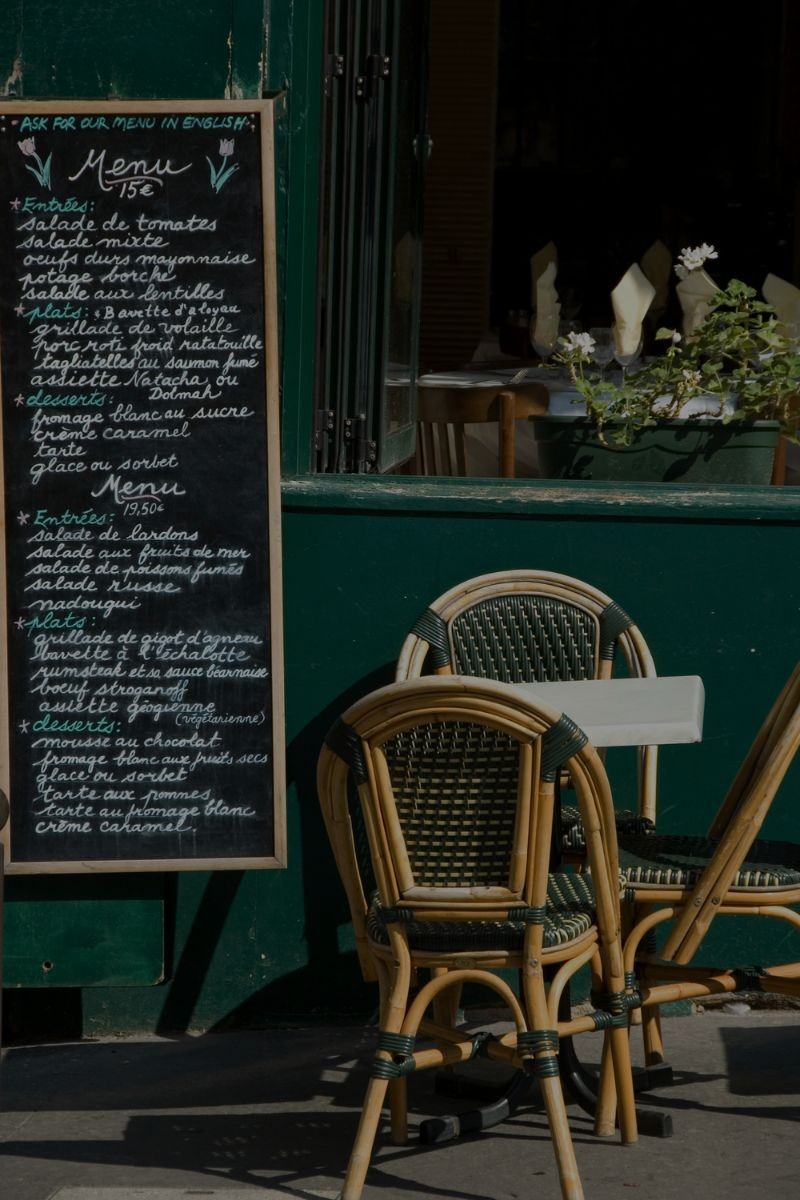 ASK FOR OUR MENU IN ENGLISH
Menu
15€
*Entrées:
salade de tomates
salade mixte
oeufs durs mayonnaise
potage borche
salade aux lentilles
*plats: *Bavette d'aloyau
grillade de volaille
porc roti froid ratatouille
tagliatelles au saumon fumé
assiette Natacha ou
Dolmah
*desserts:
fromage blanc au sucre
crème caramel
tarte
glace ou sorbet
Menu
19,50€
*Entrées:
salade de lardons
salade aux fruits de mer
salade de poissons fumés
salade russe
nadougui
*plats:
grillade de gigot d'agneau
bavette à l'échalotte
rumsteak et sa sauce béarnaise
boeuf stroganoff
assiette géogienne
(végétarienne)
*desserts:
mousse au chocolat
fromage blanc aux fruits secs
glace ou sorbet
tarte aux pommes
tarte au fromage blanc
crème caramel.